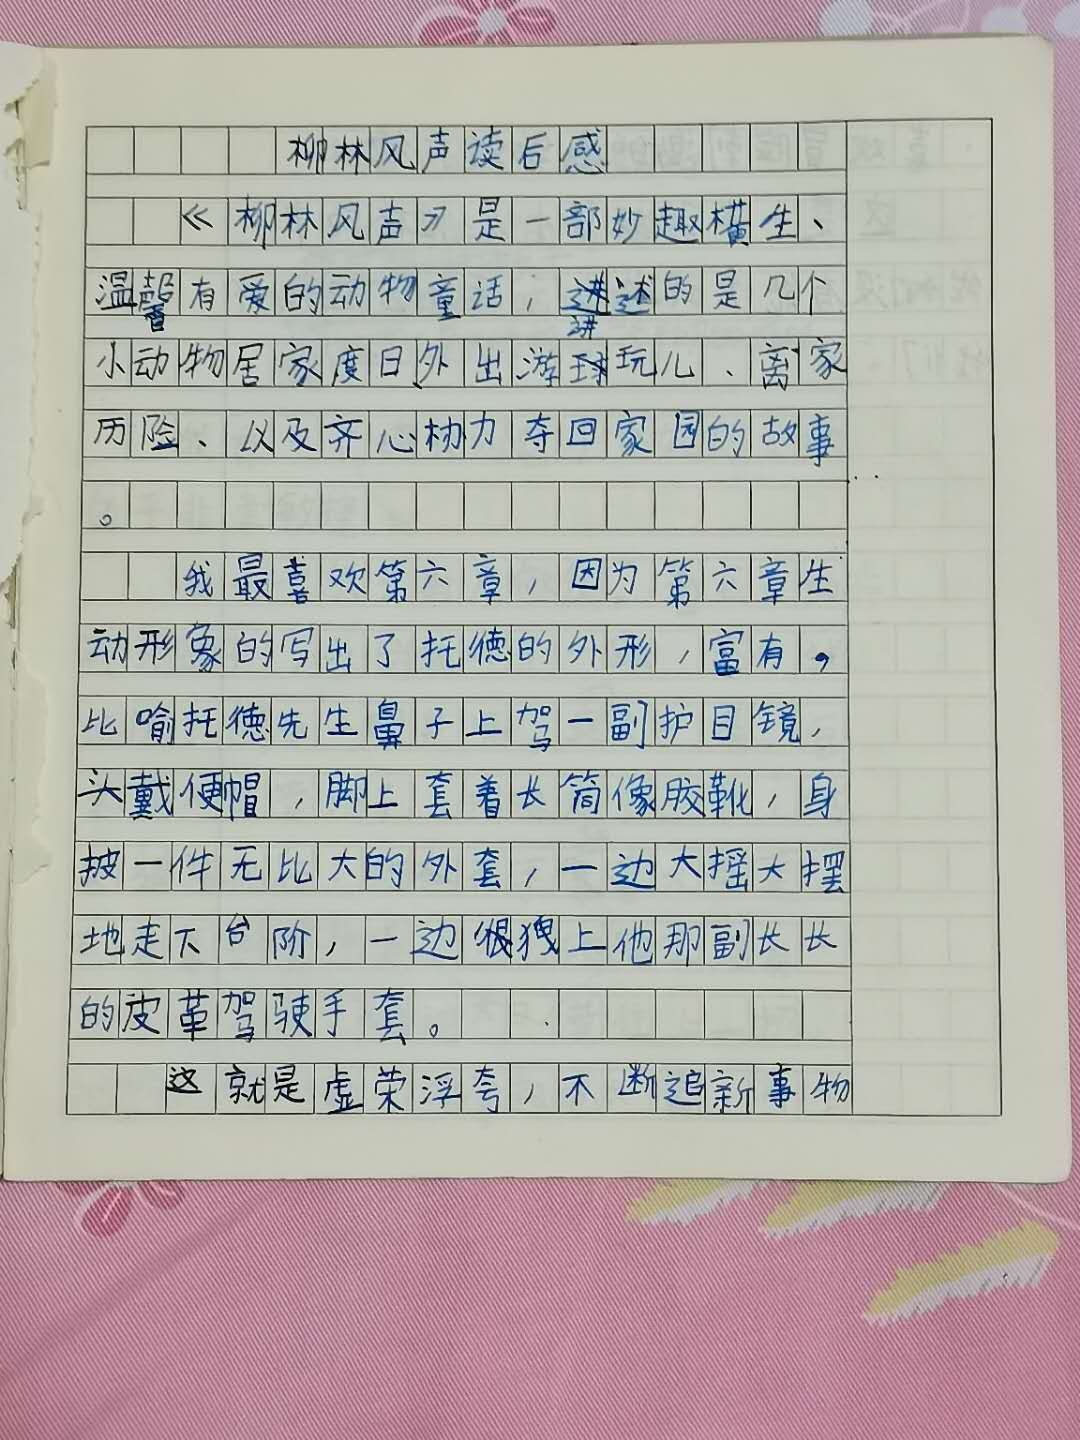 柳林风声读后感
《柳林风声》是一部妙趣横生、
温馨有爱的动物童话，讲述的是几个
小动物居家度日外出游球玩儿、离家
历险、以及齐心协力夺回家园的故事
。
我最喜欢第六章，因为第六章生
动形象的写出了托德的外形，富有。
比喻托德先生鼻子上驾一副护目镜，
头戴便帽，脚上套着长筒像胶靴，身
披一件无比大的外套，一边大摇大摆
地走下台阶，一边很拽上他那副长长
的皮革驾驶手套。
这就是虚荣浮夸，不断追新事物